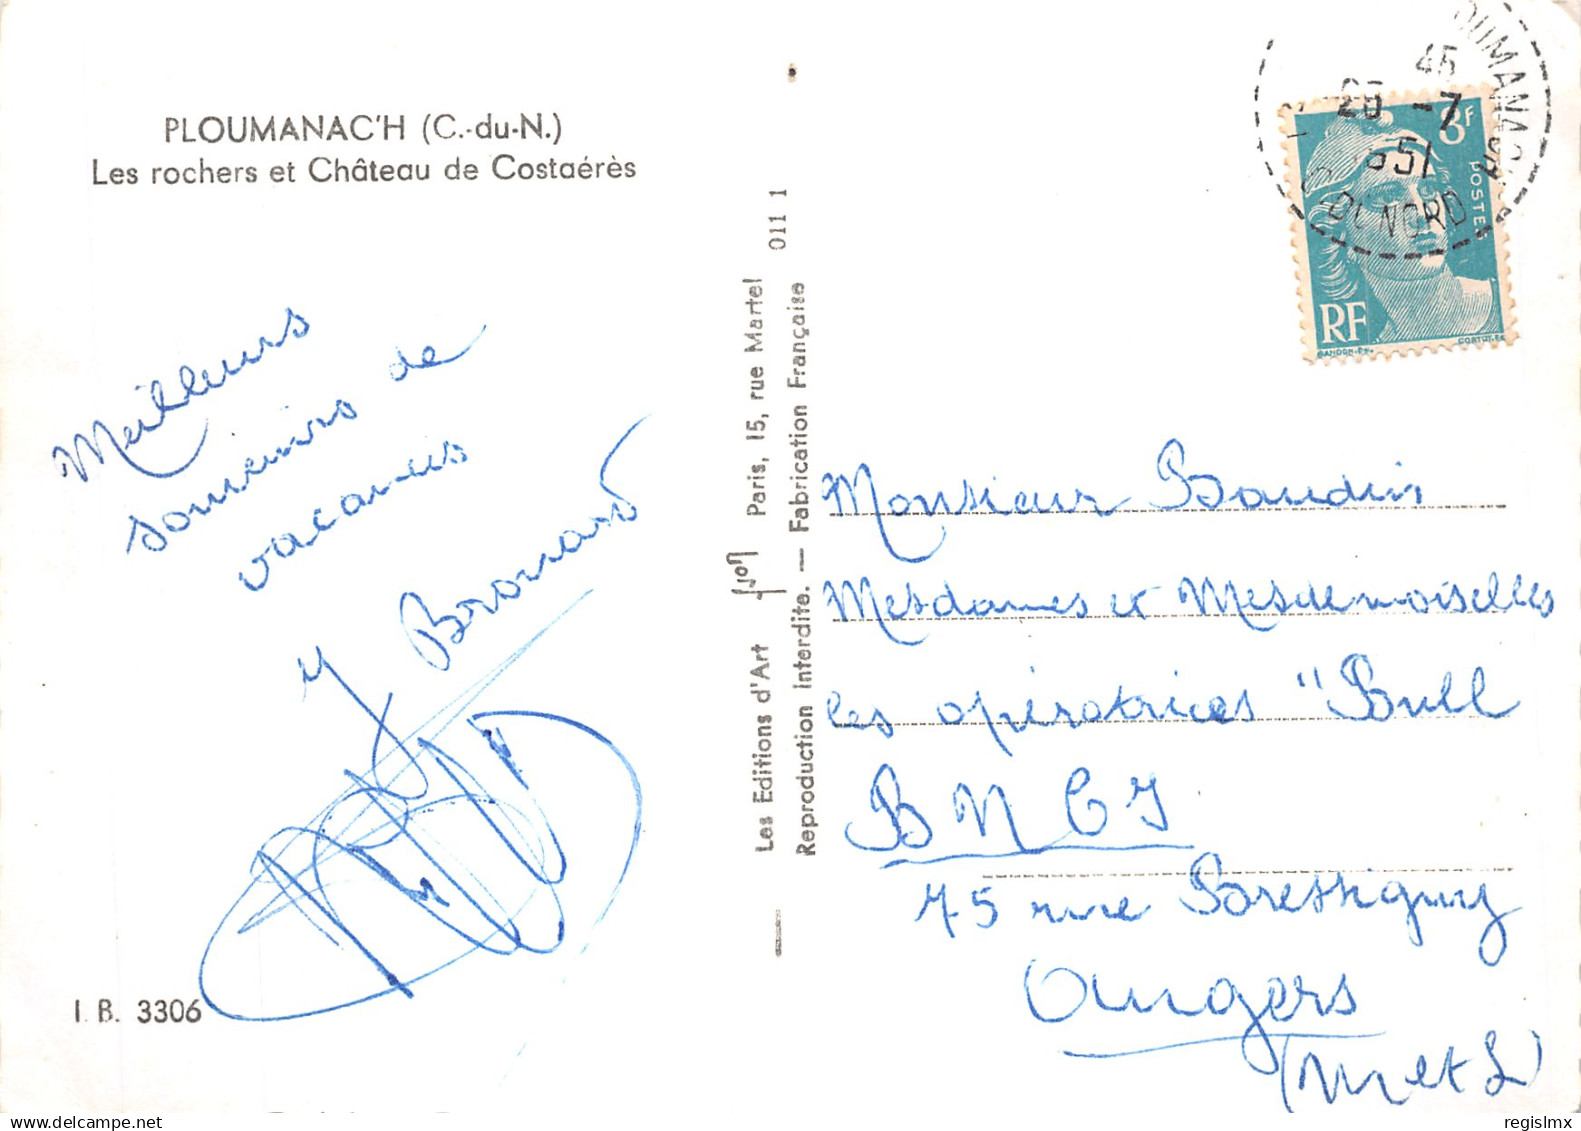 PLOUMANAC'H (C.-du-N.)
Les rochers et Château de Costaérès
Meilleurs
souvenirs de
vacances
I. B. 3306
Les Editions d'Art Yvon Paris, 15, rue Martel 011 1
Reproduction Interdite. — Fabrication Française
OUMANAC'H
45
-7
51
DU NORD
8F
POSTES
RF
GANDON
CORTOT
Monsieur Baudin
Mesdames et Mesdemoiselles
les opératrices "Bull
B N C I
75 rue Bressigny
Angers
(M et L)
regislmx